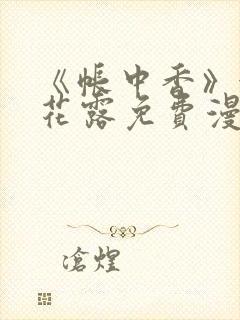 《帐中香》
花露免费漫
沧煌